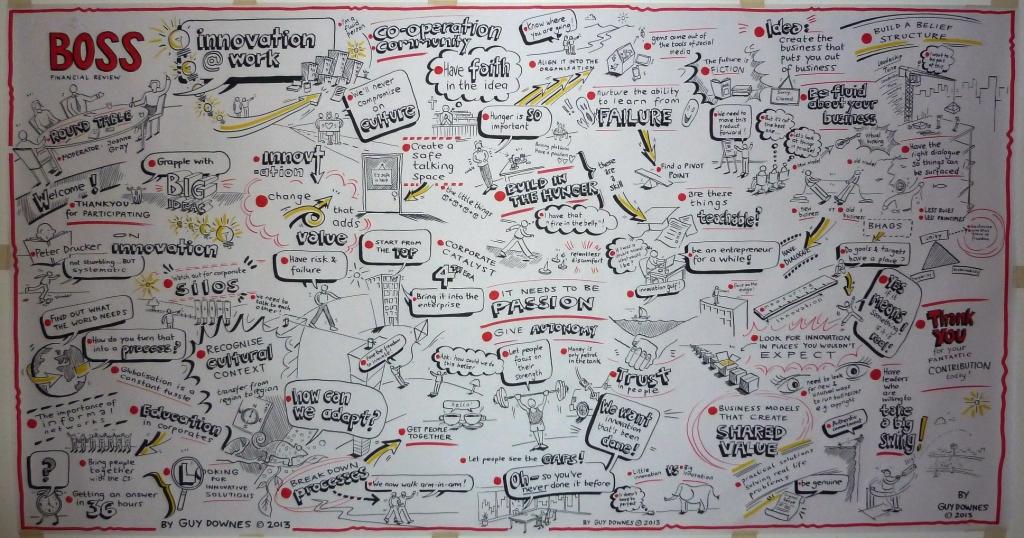 BOSS
FINANCIAL REVIEW
innovation
@ work
I'm a
fluid
person
CO-OPERATION
COMMUNITY
Have faith
in the idea
Know where
you are going!
ALIGN IT INTO THE
ORGANISATION
gems come out of
the tools of social
media
The future is
FICTION
Idea:
Create the
business that
puts you out
of business
BUILD A BELIEF
STRUCTURE
Leadership
ROUND TABLE
MODERATOR: Joanne
Gray
We'll never
compromise
on
culture
Hunger is SO
important
nurture the ability
to learn from
FAILURE
Be fluid
about your
business
We need to
move this
product
forward!
Have the
right dialogue
so things can
be surfaced
Welcome!
THANKYOU
for PARTICIPATING
Grapple with
BIG
IDEAS
innovation
change
that
adds
value
Create a
safe
talking
space
BUILD IN
THE HUNGER
these
are a
skill
Find a PIVOT
POINT
are these
things
teachable?
I have that
"fire in the belly"!
new
business
old
business
BHAGS
LESS RULES
LED PRINCIPLES
UNITY
Peter Drucker ON
innovation
not stumbling...BUT
systematic
Have risk &
failure
START FROM
the TOP
CORPORATE
CATALYST
4TH ERA
Bring it into the
enterprise
relentless
discomfort
be an entrepreneur
for a while!
innovation gulf!
DIALOGUE
Do goals & targets
have a place?
Watch out for corporate
silos
we need to
talk to each
other!
IT NEEDS TO BE
PASSION
GIVE AUTONOMY
innovation
YES
if it
MEANS
Something
real!
FIND OUT WHAT
THE WORLD NEEDS
How do you turn that
into a process?
RECOGNISE
cultural
CONTEXT
LOOK FOR INNOVATION
IN PLACES YOU WOULDN'T
EXPECT
THANK
YOU
for your
FANTASTIC
CONTRIBUTION
today!
Globalisation is a
constant tussle
transfer from
region to region
how can
we adapt?
Ask: how could we do
this better
Let people
focus on
their
strength
Money is
only petrol
in the tank
TRUST
people
need to look
for new &
unusual ways
to run businesses
e.g. copyright
Have
leaders
who are
willing to
take
a big
swing!
The importance of
informal
networks
Education
in corporates
hello!
GET PEOPLE
TOGETHER
We want
innovation
that's been
done!
BUSINESS MODELS
THAT CREATE
SHARED
VALUE
practical solutions
solving real life
problems
be genuine
?
Bring people
together with
the CI
LOOKING
FOR
INNOVATIVE
SOLUTIONS
Getting an answer
in 36 hours
BREAK DOWN
processes
We now walk arm-in-arm!
Let people see the GAPS!
Oh - so you've
never done it before
Little
innovation
VS
Big
innovation
It doesn't
have to be
perfect!
BY GUY DOWNES © 2013
BY GUY DOWNES © 2013
BY
GUY DOWNES
© 2013